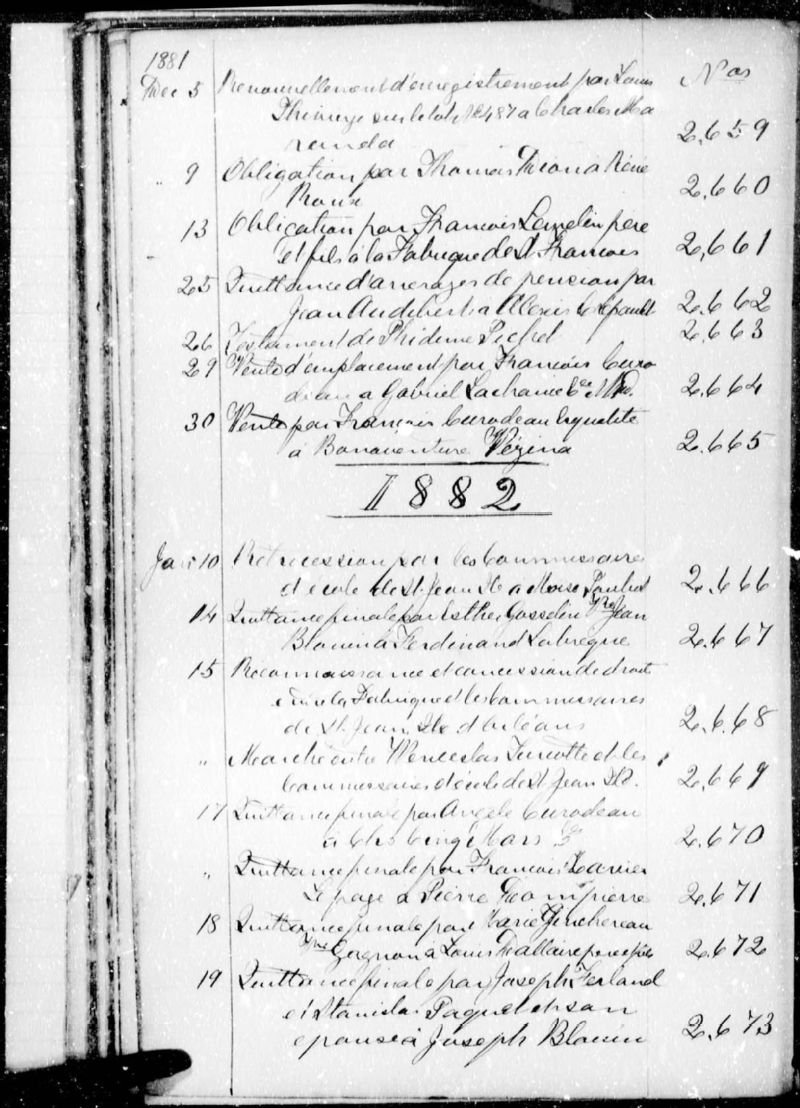 1881
Dec 5 Renouvellement d'enregistrement par Louis Nos
Thivierge sur le lot No 487 a Charles Ma
randa 2.659
" 9 Obligation par Thomas Dion a
Roux 2.660
13 Obligation par Francois Lemelin pere
et fils à la Fabrique de St Francois 2.661
25 Quittance d'arrerages de pension par
Jean Audibert a Alexis 2.662
26 Testament de Phideme Pichet 2.663
29 Vente d'emplacement par Francois Curo
deau a Gabriel Lachance 2.664
30 Vente par Francois Curodeau
à Bonaventure Vézina 2.665
1882
Janr 10 Retrocession par les Commissaires
d'école de St. Jean Ile a Moise Pouliot 2.666
14 Quittance finale par Esther Gosselin Vve Jean
Blouin à Ferdinand Labrèque 2.667
15 Reconnaissance et concession de droit
entre la Fabrique et les Commissaires
de St. Jean Ile d'orléans 2.668
" Marché entre Wenceslas Turcotte et les
Commissaires d'école de St Jean I.O. 2.669
17 Quittance finale par Angèle Curodeau
à Chs Cinqmars 2.670
" Quittance finale par Francois Xavier
Lepage à Pierre Dompierre 2.671
18 Quittance finale par Marie Jinchereau
Vve Gagnon à Louis Dallaire pere et fils 2.672
19 Quittance finale par Joseph Ferland
et Stanislas Paquet et son
epouse à Joseph Blouin 2.673